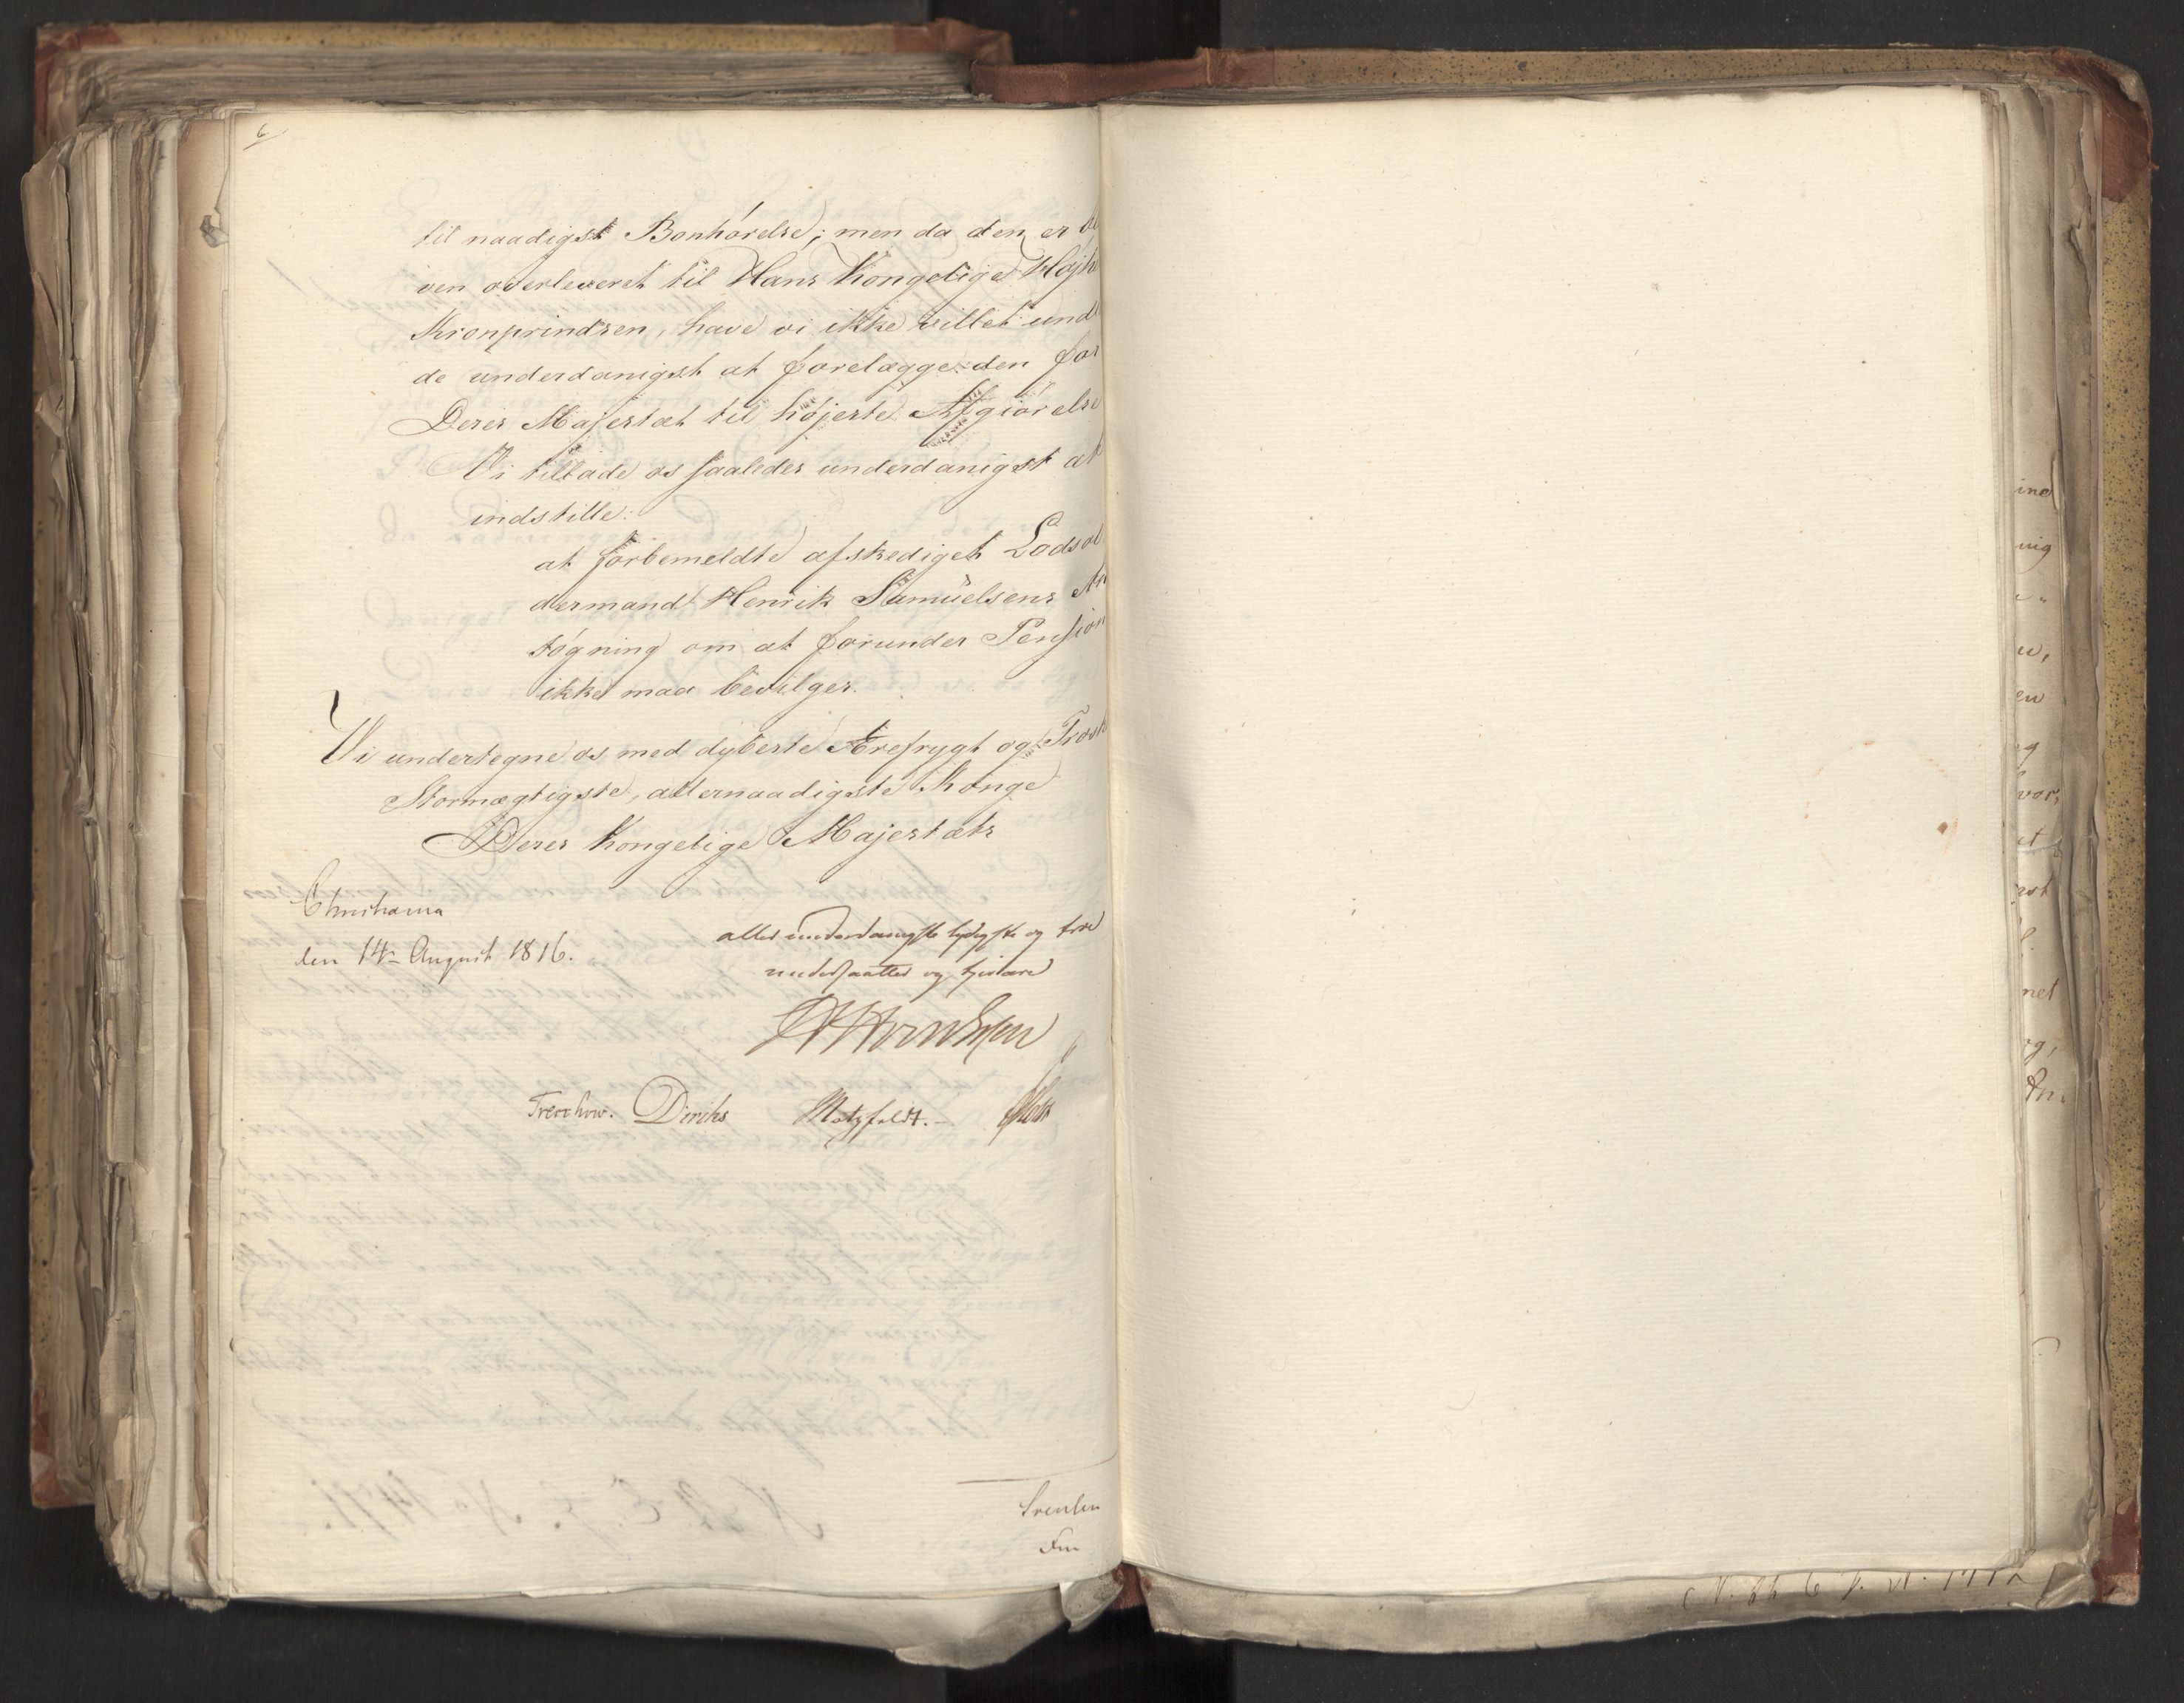 6.
til naadigst Bønhørelse; men da den er bl
ven overleveret til Hans Kongelige Højh
Kronprindsen, have vi ikke villet und
de underdanigst at forelægge den for
Deres Majestæt til højeste Afgiørelse
Vi tillade os saaledes underdanigst at
indstille:
at førbemeldte afskediget Lodsol
dermand Henrik Samuelsens An
søgning om at forundes Pension
ikke maa bevilges.
Vi undertegne os med dybeste Ærefrygt og Trosk
Stormægtigste, allernaadigste Konge
Deres Kongelige Majestæts
Christiania
den 14de August 1816.
allerunderdanigste lydigste og troe
undersaatter og tjenere
Treschow. Diriks Motzfeldt.
ine
nig
en
og
hvor,
et
net
og,